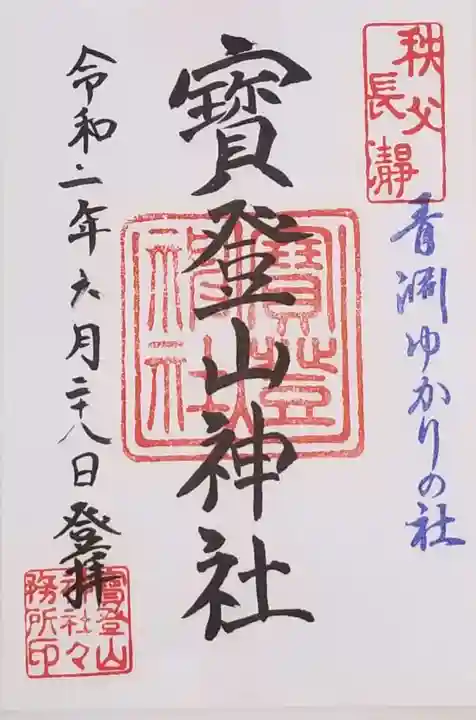 秩父
長瀞
青淵ゆかりの社
寳登山神社
令和二年六月二十八日 登拝
寳登山
神社々
務所印